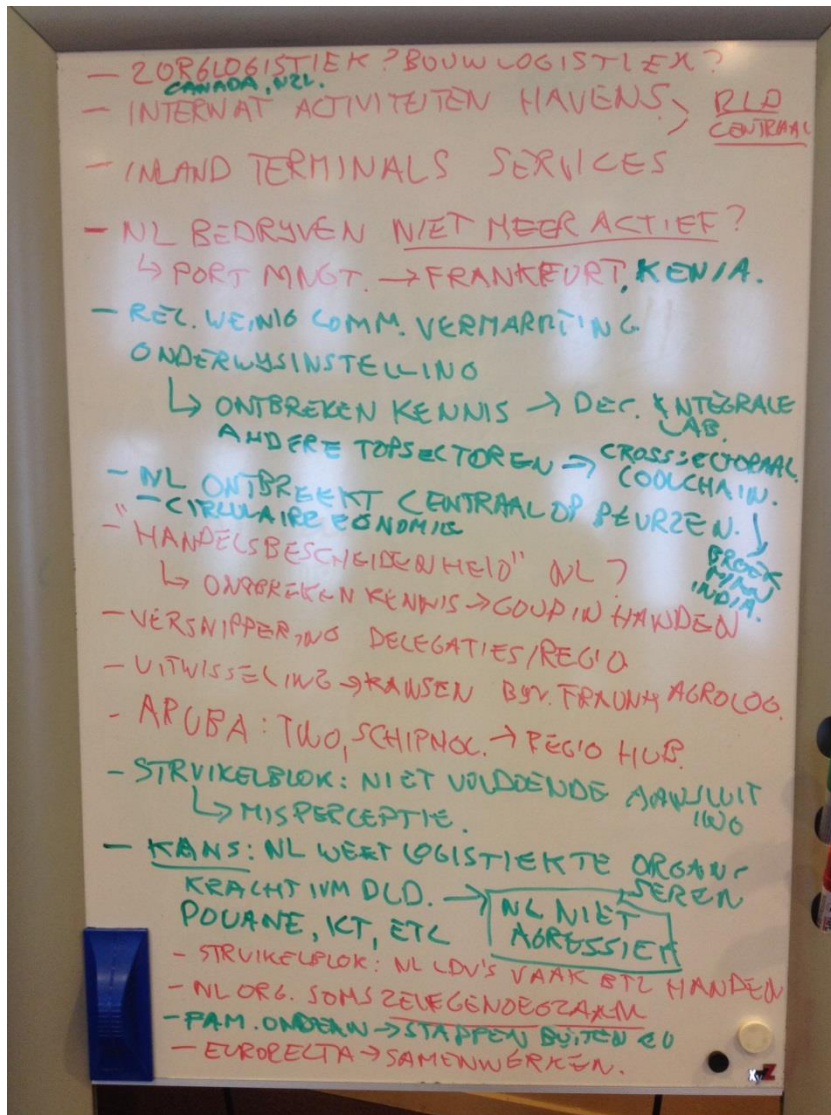 - ZORGLOGISTIEK? BOUWLOGISTIEK?
CANADA, NZL.
- INTERNAT ACTIVITEITEN HAVENS
RLD
CENTRAAL
- INLAND TERMINALS SERVICES
- NL BEDRYVEN NIET MEER ACTIEF?
↳ PORT MNGT. → FRANKFURT, KENIA.
- REL. WEINIG COMM. VERMARKTING
ONDERWYSINSTELLING
↳ ONTBREKEN KENNIS → DEC. INTEGRALE
LAB.
ANDERE TOPSECTOREN → CROSSSECTORAAL
COOLCHAIN.
- NL ONTBREEKT CENTRAAL OP BEURZEN.
- CIRCULAIRE ECONOMIE
BROEK
MIJN
INDIA.
- "HANDELSBESCHEIDENHEID" NL?
↳ ONTBREKEN KENNIS → GOUD IN HANDEN
- VERSNIPPERING DELEGATIES/REGIO
- UITWISSELING → KANSEN BYV. FRAUNH, AGROLOG.
- ARUBA: TNO, SCHIPHOL. → REGIO HUB.
- STRUIKELBLOK: NIET VOLDOENDE AANSLUIT
TWO
↳ MISPERCEPTIE.
- KANS: NL WEET LOGISTIEK TE ORGANI-
SEREN
KRACHT IVM DLD. → NL NIET
AGRESSIEF
DOUANE, ICT, ETC
- STRUIKELBLOK: NL LDV'S VAAK BTL HANDEN
- NL ORG. SOMS ZELFGENOEGZAAM
- FAM. ONDERN → STAPPEN BUITEN EU
- EURODELTA → SAMENWERKEN.